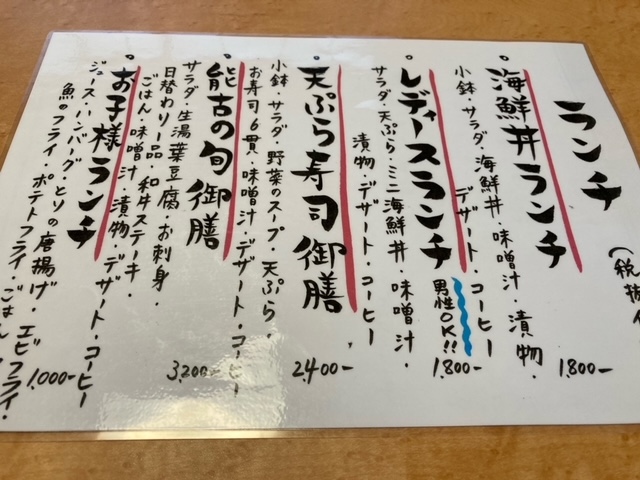 ランチ
(税抜
。海鮮丼ランチ
小鉢・サラダ・海鮮丼・味噌汁・漬物・
デザート・コーヒー
1,800-
。レディースランチ
男性OK!!
サラダ・天ぷら・ミニ海鮮丼・味噌汁・
漬物・デザート・コーヒー
1,800-
。天ぷら寿司御膳
小鉢・サラダ・野菜のスープ・天ぷら・
お寿司6貫・味噌汁・デザート・コーヒー
2,400-
。能古の旬御膳
サラダ・生湯葉豆腐・お刺身・
日替わり一品・和牛ステーキ・
ごはん・味噌汁・漬物・デザート・コーヒー
3,200-
。お子様ランチ
ジュース・ハンバーグ・とりの唐揚げ・エビフライ・
魚のフライ・ポテトフライ・ごはん
1,000-